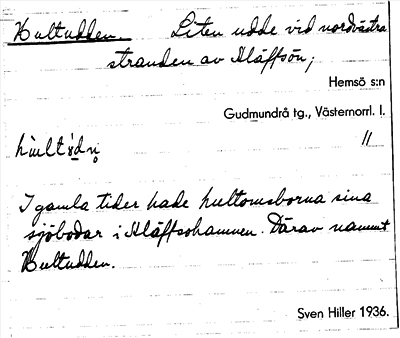 Hultudden Liten udde vid nordvästra
stranden av Kläffsön;
Hemsö s:n
Gudmundrå tg., Västernorrl. l.
11
I gamla tider hade hultomsborna sina
sjöbodar i Kläffsöhamnen. Därav namnet
Hultudden.
Sven Hiller 1936.